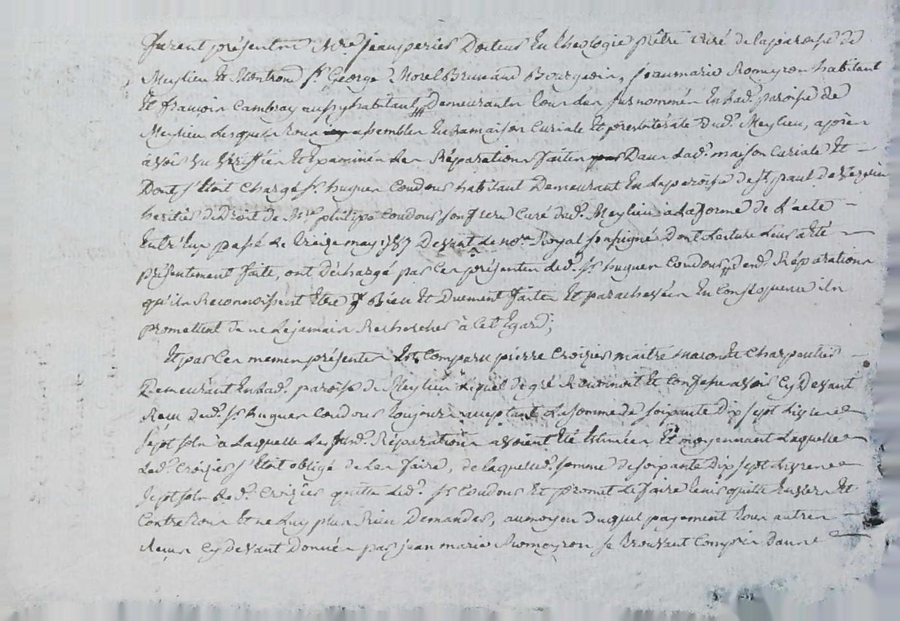 furent présentes Mre jean peries Docteur En theologie prêtre curé de la paroisse de
Meylieu et Montrond sr George Morel Bourgeois, jean marie Romeyron habitant
Et françois Cambray aussy habitant Demeurants tous les susnommés En lad. paroisse de
Meylieu Lesquels tous assemblés En la maison Curiale Et presbiterale dud. Meylieu, apres
avoir vu Veriffier Et Examiner Les Réparations faites Dans lad. maison Curiale Et
Dont s'Etoit Chargé sr hugues Coudour habitant Demeurant En La paroisse de st paul de
heritier de Droit de Mre philipe Coudour son frere Curé dud. Meylieu a la forme de L'acte
Entr'Eux passé Le treize may 1787 Devant Le nore Royal soussigné Dont Lecture leur a été
présentement faite, ont déchargé par Ces présentes led. sr hugues Coudour desd. Réparations
qu'ils Reconnoissent Etre Bien Et Duement faites Et parachevées En Conséquence ils
promettent de ne Le jamais Rechercher à Cet Egard;
Et par Ces memes présentes Est Comparu pierre Croizier maitre maçon Et Charpentier
Demeurant En lad. paroisse de Meylieu Lequel de gré Reconnoit Et Confesse avoir Cy Devant
Reçu dud. sr hugues Coudour toujours acceptant La somme de soixante Dix sept Livres
sept sols a Laquelle Les susd. Réparations avoient Eté Estimées Et moyennant Laquelle
Led. Croizier s'Etoit obligé de Les faire, de laquelle somme de soixante Dix sept Livres
sept sols led. Croizier quitte led. sr Coudour Et promet Le faire tenir quitte Envers Et
Contre tous Et ne Luy plus Rien Demander, au moyen Duquel payement tous autres
Reçus Cy Devant Donnés par jean marie Romeyron se trouvant Compris Dans